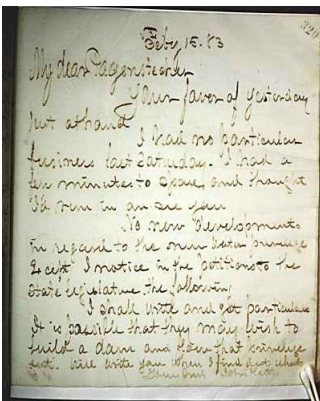 320
Feby 15. 83
My dear Pagenstecher
Your favor of yesterday
just at hand
I had no particular
business last Saturday. I had a
few minutes to spare and thought
I'd run in an see you
No new developments
in regard to the new water
Except I notice in the petitions to the
State Legislature the following
I shall write and get particulars
It is possible that they may wish to
build a dam and have that privilege
Will write you when I find out what
Yours truly